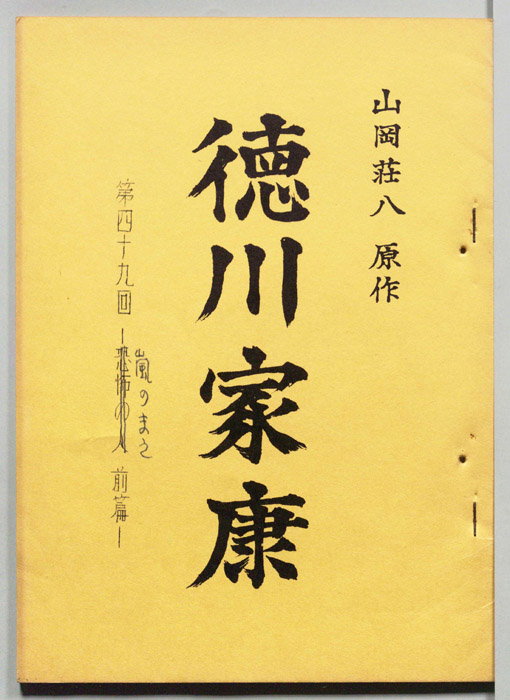 山岡荘八 原作
徳川家康
第四十九回 ー恐怖の人 前篇ー
嵐のまえ